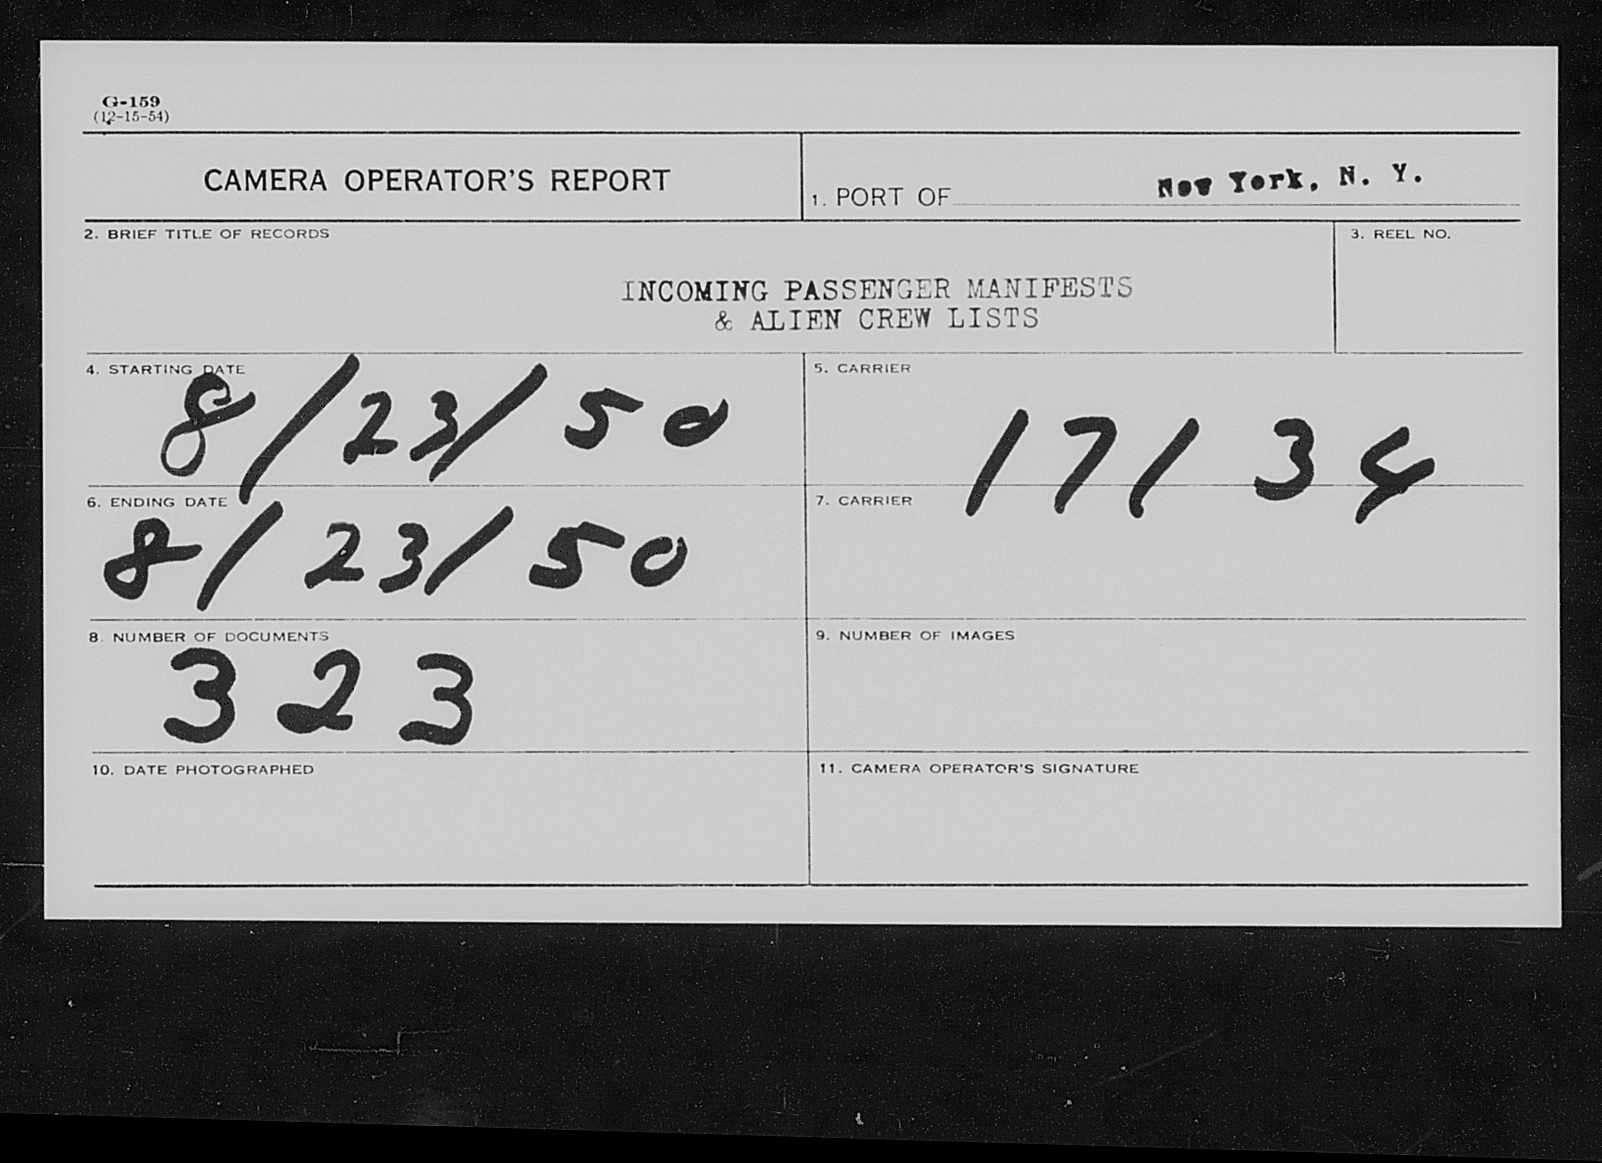 G-159
(12-15-54)
CAMERA OPERATOR'S REPORT
1. PORT OF New York, N. Y.
2. BRIEF TITLE OF RECORDS
3. REEL NO.
INCOMING PASSENGER MANIFESTS
& ALIEN CREW LISTS
4. STARTING DATE
8/23/50
5. CARRIER
17134
6. ENDING DATE
8/23/50
7. CARRIER
8. NUMBER OF DOCUMENTS
323
9. NUMBER OF IMAGES
10. DATE PHOTOGRAPHED
11. CAMERA OPERATOR'S SIGNATURE